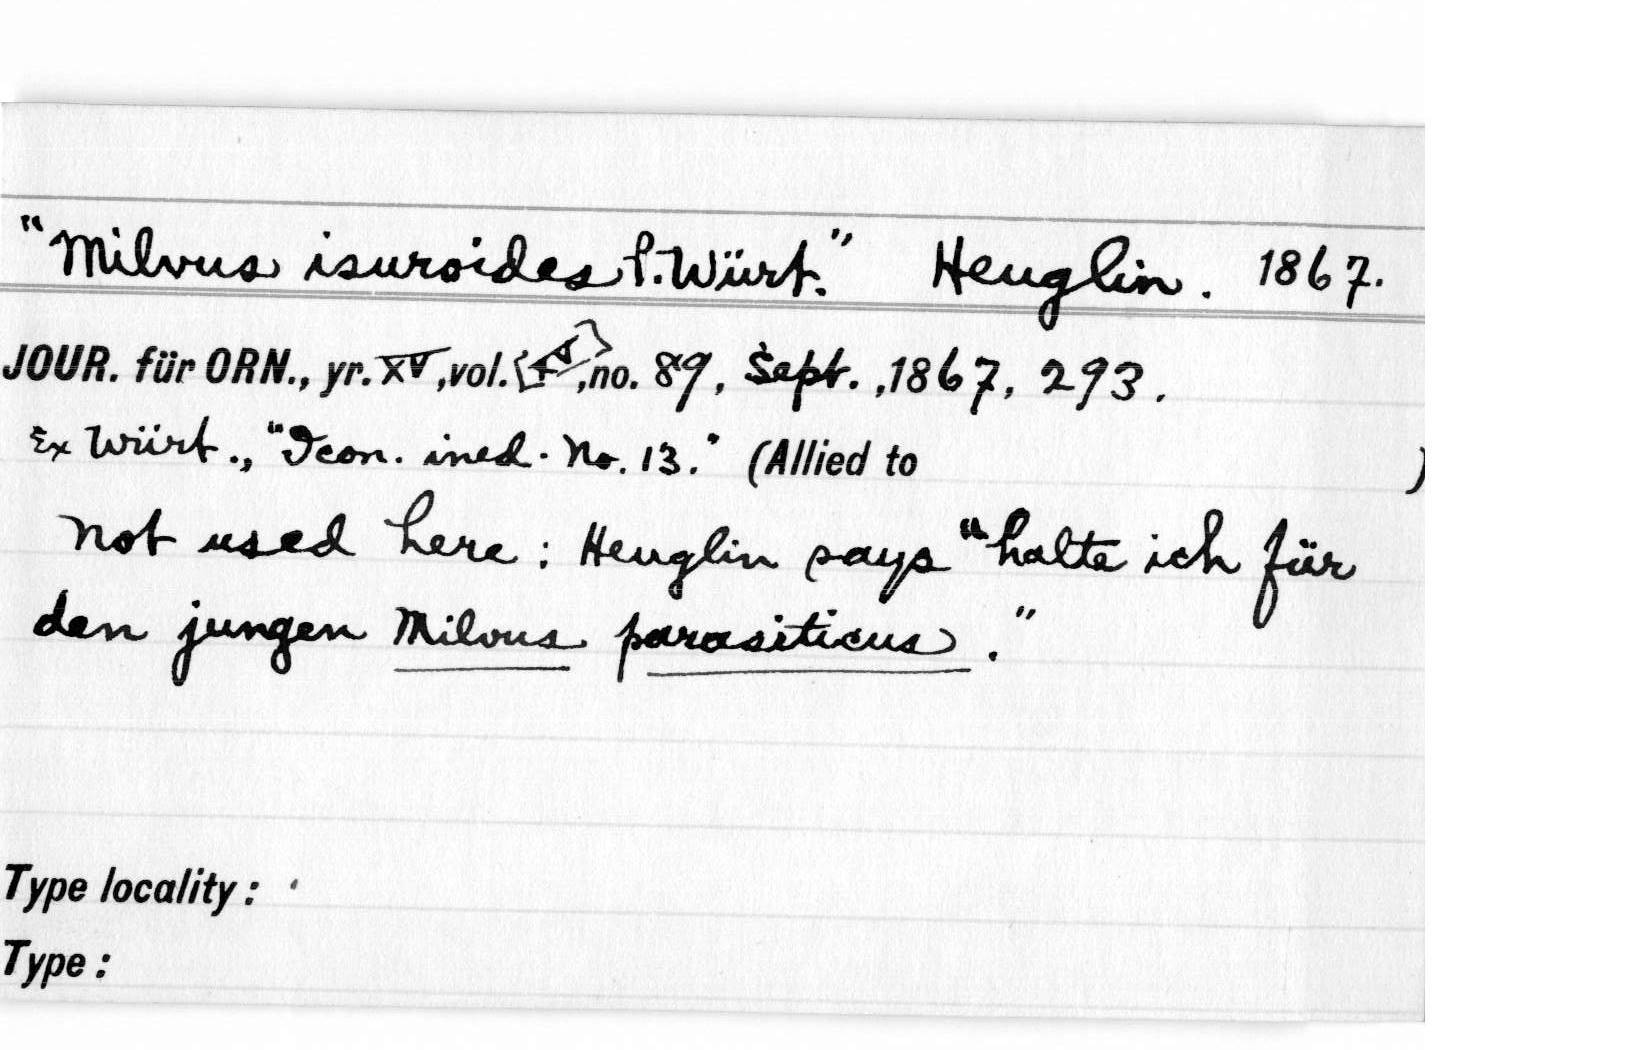 "Milvus isuroides P. Würt." Heuglin. 1867.
JOUR. für ORN., yr. XV, vol. [XV], no. 89, Sept., 1867, 293.
Ex Würt., "Icon. ined. No. 13." (Allied to )
Not used here: Heuglin says "halte ich für
den jungen Milvus parasiticus."
Type locality:
Type: